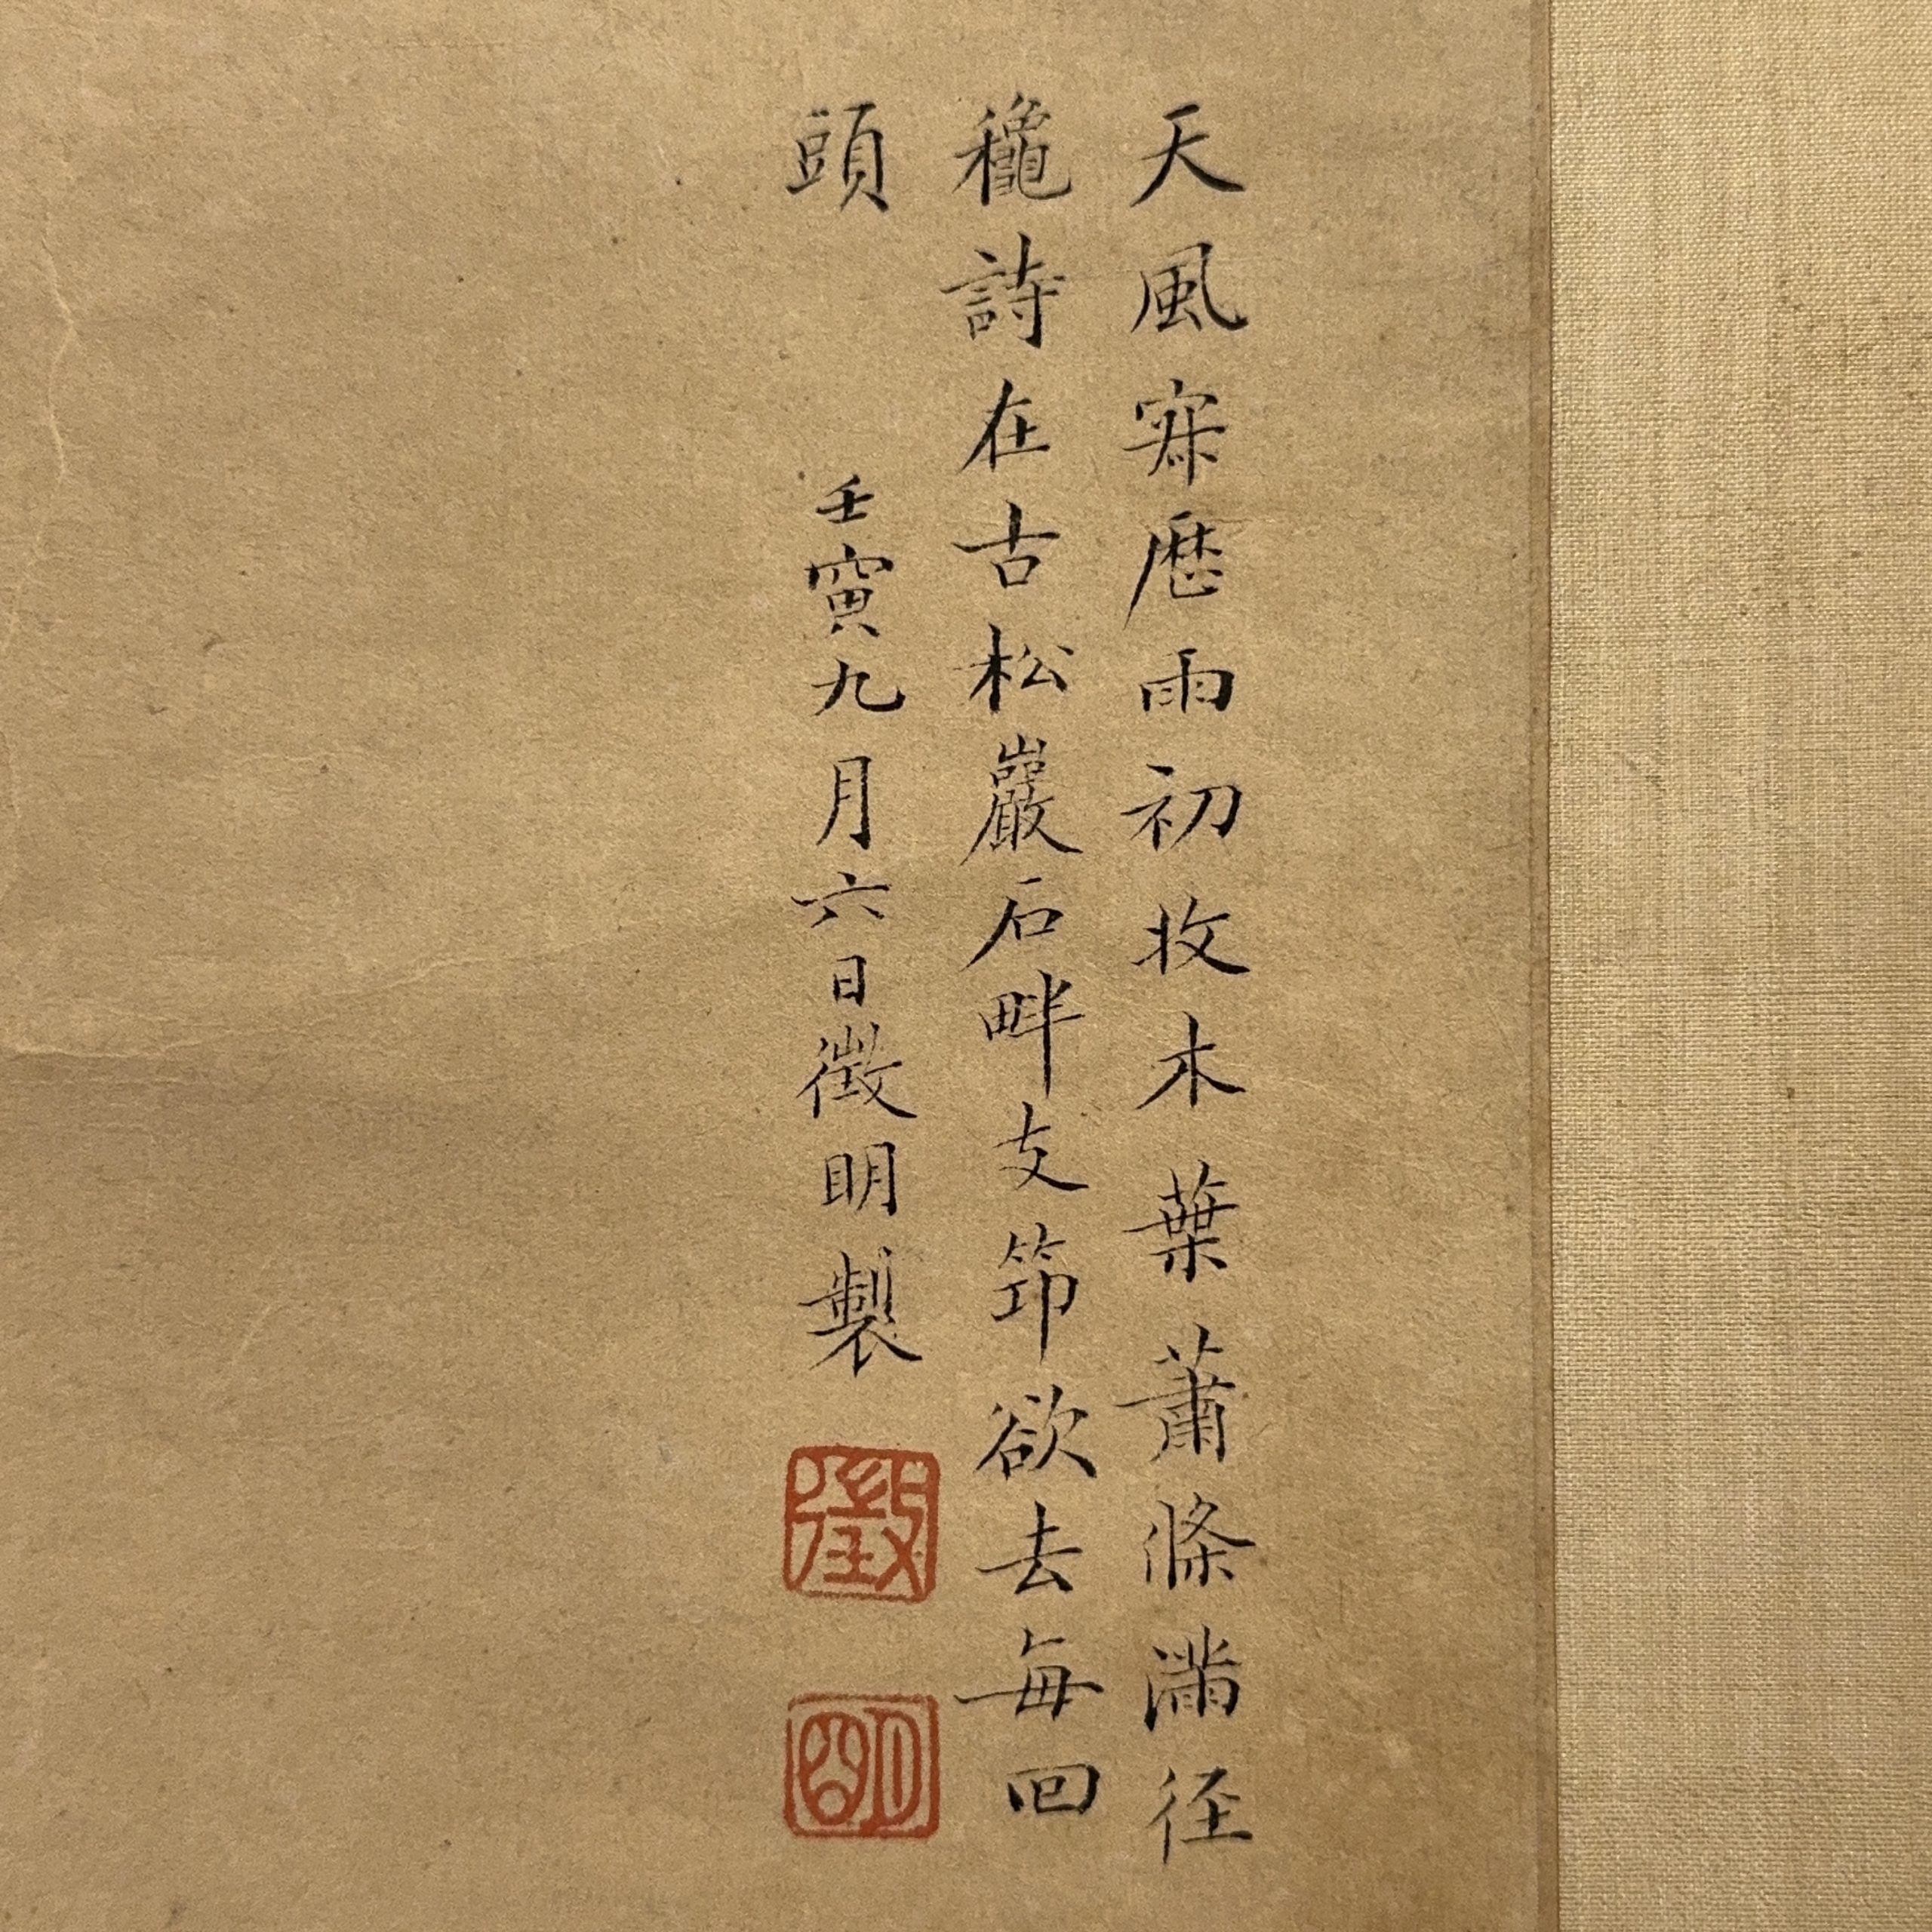 天風寂歷雨初收木葉蕭條滿径
穐詩在古松巖石畔支筇欲去每回
頭
壬寅九月六日徵明製
徵
明